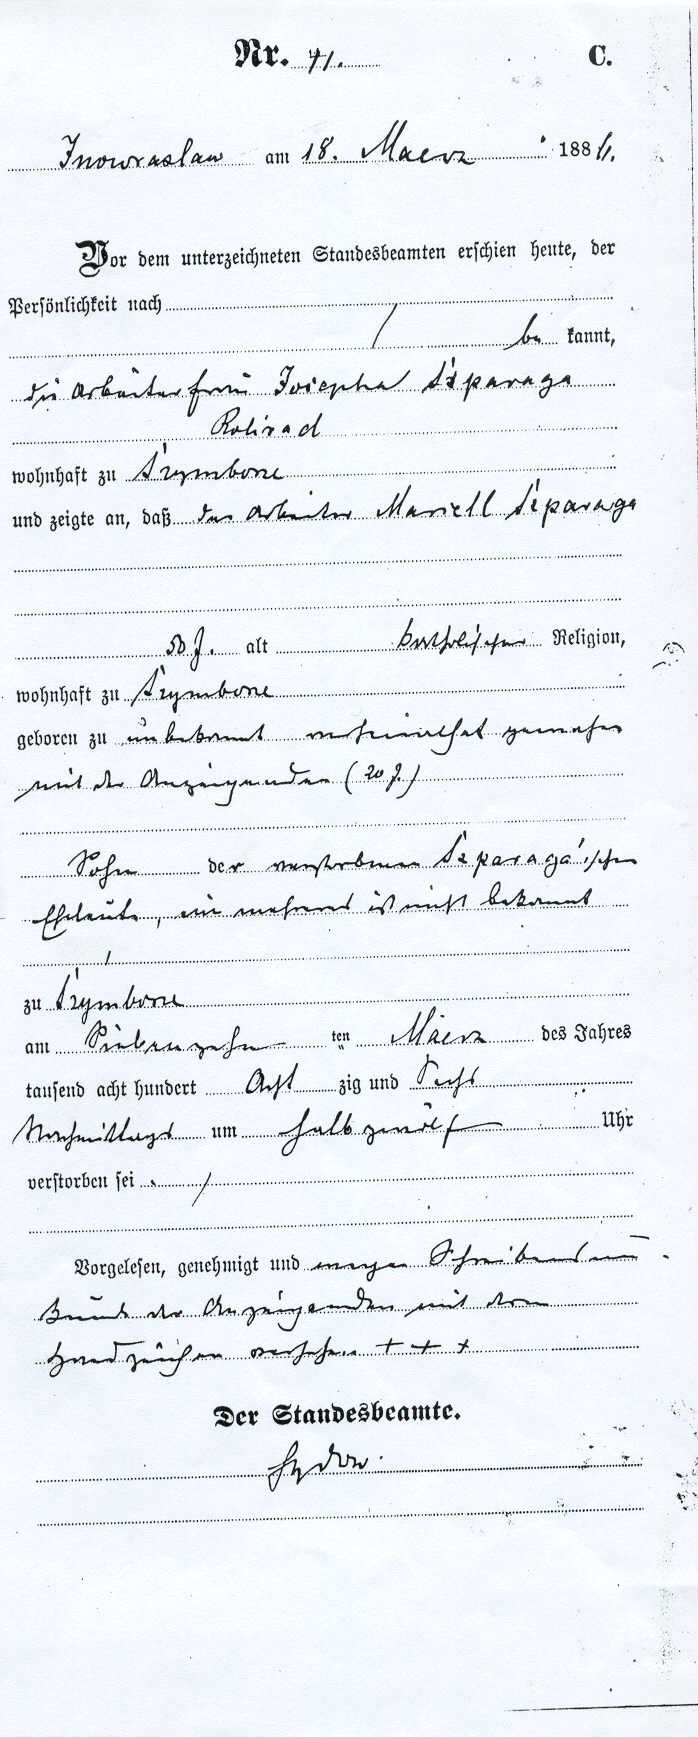 Nr. 41. C.
Inowrazlaw am 18. Maerz 1886.
Vor dem unterzeichneten Standesbeamten erschien heute, der
Persönlichkeit nach
be kannt,
die Arbeiterfrau Josepha Szparaga
wohnhaft zu Szymborze
und zeigte an, daß der Arbeiter Marcell Szparaga
50 J. alt katholischer Religion,
wohnhaft zu Szymborze
geboren zu unbekannt verheirathet gewesen
mit der Anzeigenden (20 J.)
Sohn der verstorbenen Szparaga'schen
Eheleute, ein mehreres ist nicht bekannt
zu Szymborze
am Siebenzehn ten Maerz des Jahres
tausend acht hundert Acht zig und Sechs
Nachmittags um halb zwölf Uhr
verstorben sei
Vorgelesen, genehmigt und wegen Schreibensun
kunde der Anzeigenden mit dem
Handzeichen versehen + + +
Der Standesbeamte.
Sydow.